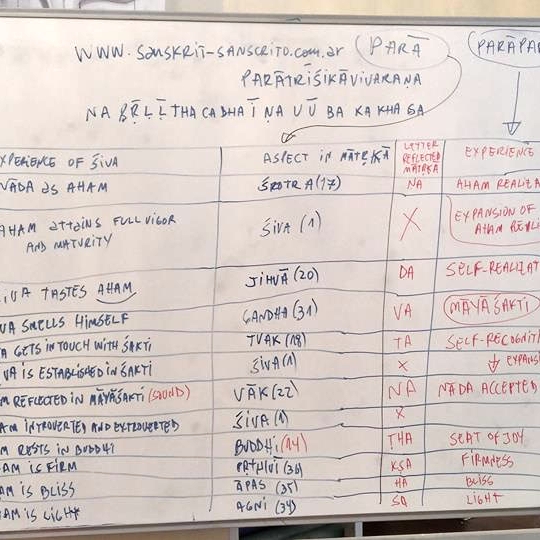 WWW.SANSKRIT-SANSCRITO.COM.AR (PARĀ (PARĀPAR
PARĀTRĪŚIKĀVIVARAṆA
LETTER REFLECTED MĀTṚKĀ
EXPERIENCE OF ŚIVA ASPECT IN MĀTṚKĀ EXPERIENCE
NĀDA AS AHAM ŚROTRA (17) NA AHAM REALIZA
AHAM ATTAINS FULL VIGOR AND MATURITY ŚIVA (1) X EXPANSION OF AHAM REALI
IVA TASTES AHAM JIHVĀ (20) DA SELF-REALIZAT
VA SMELLS HIMSELF GANDHA (31) VA MĀYĀŚAKTI
A GETS IN TOUCH WITH ŚAKTI TVAK (18) TA SELF-RECOGNITI
VA IS ESTABLISHED IN ŚAKTI ŚIVA (1) X EXPANS
M REFLECTED IN MĀYĀŚAKTI (SOUND) VĀK (22) NA NĀDA ACCEPTED
AM INTROVERTED AND EXTROVERTED ŚIVA (1) X
M RESTS IN BUDDHI BUDDHI (14) THA SEAT OF JOY
AM IS FIRM PṚTHIVĪ (36) KṢA FIRMNESS
AM IS BLISS ĀPAS (35) HA BLISS
AM IS LIGHT AGNI (34) SA LIGHT